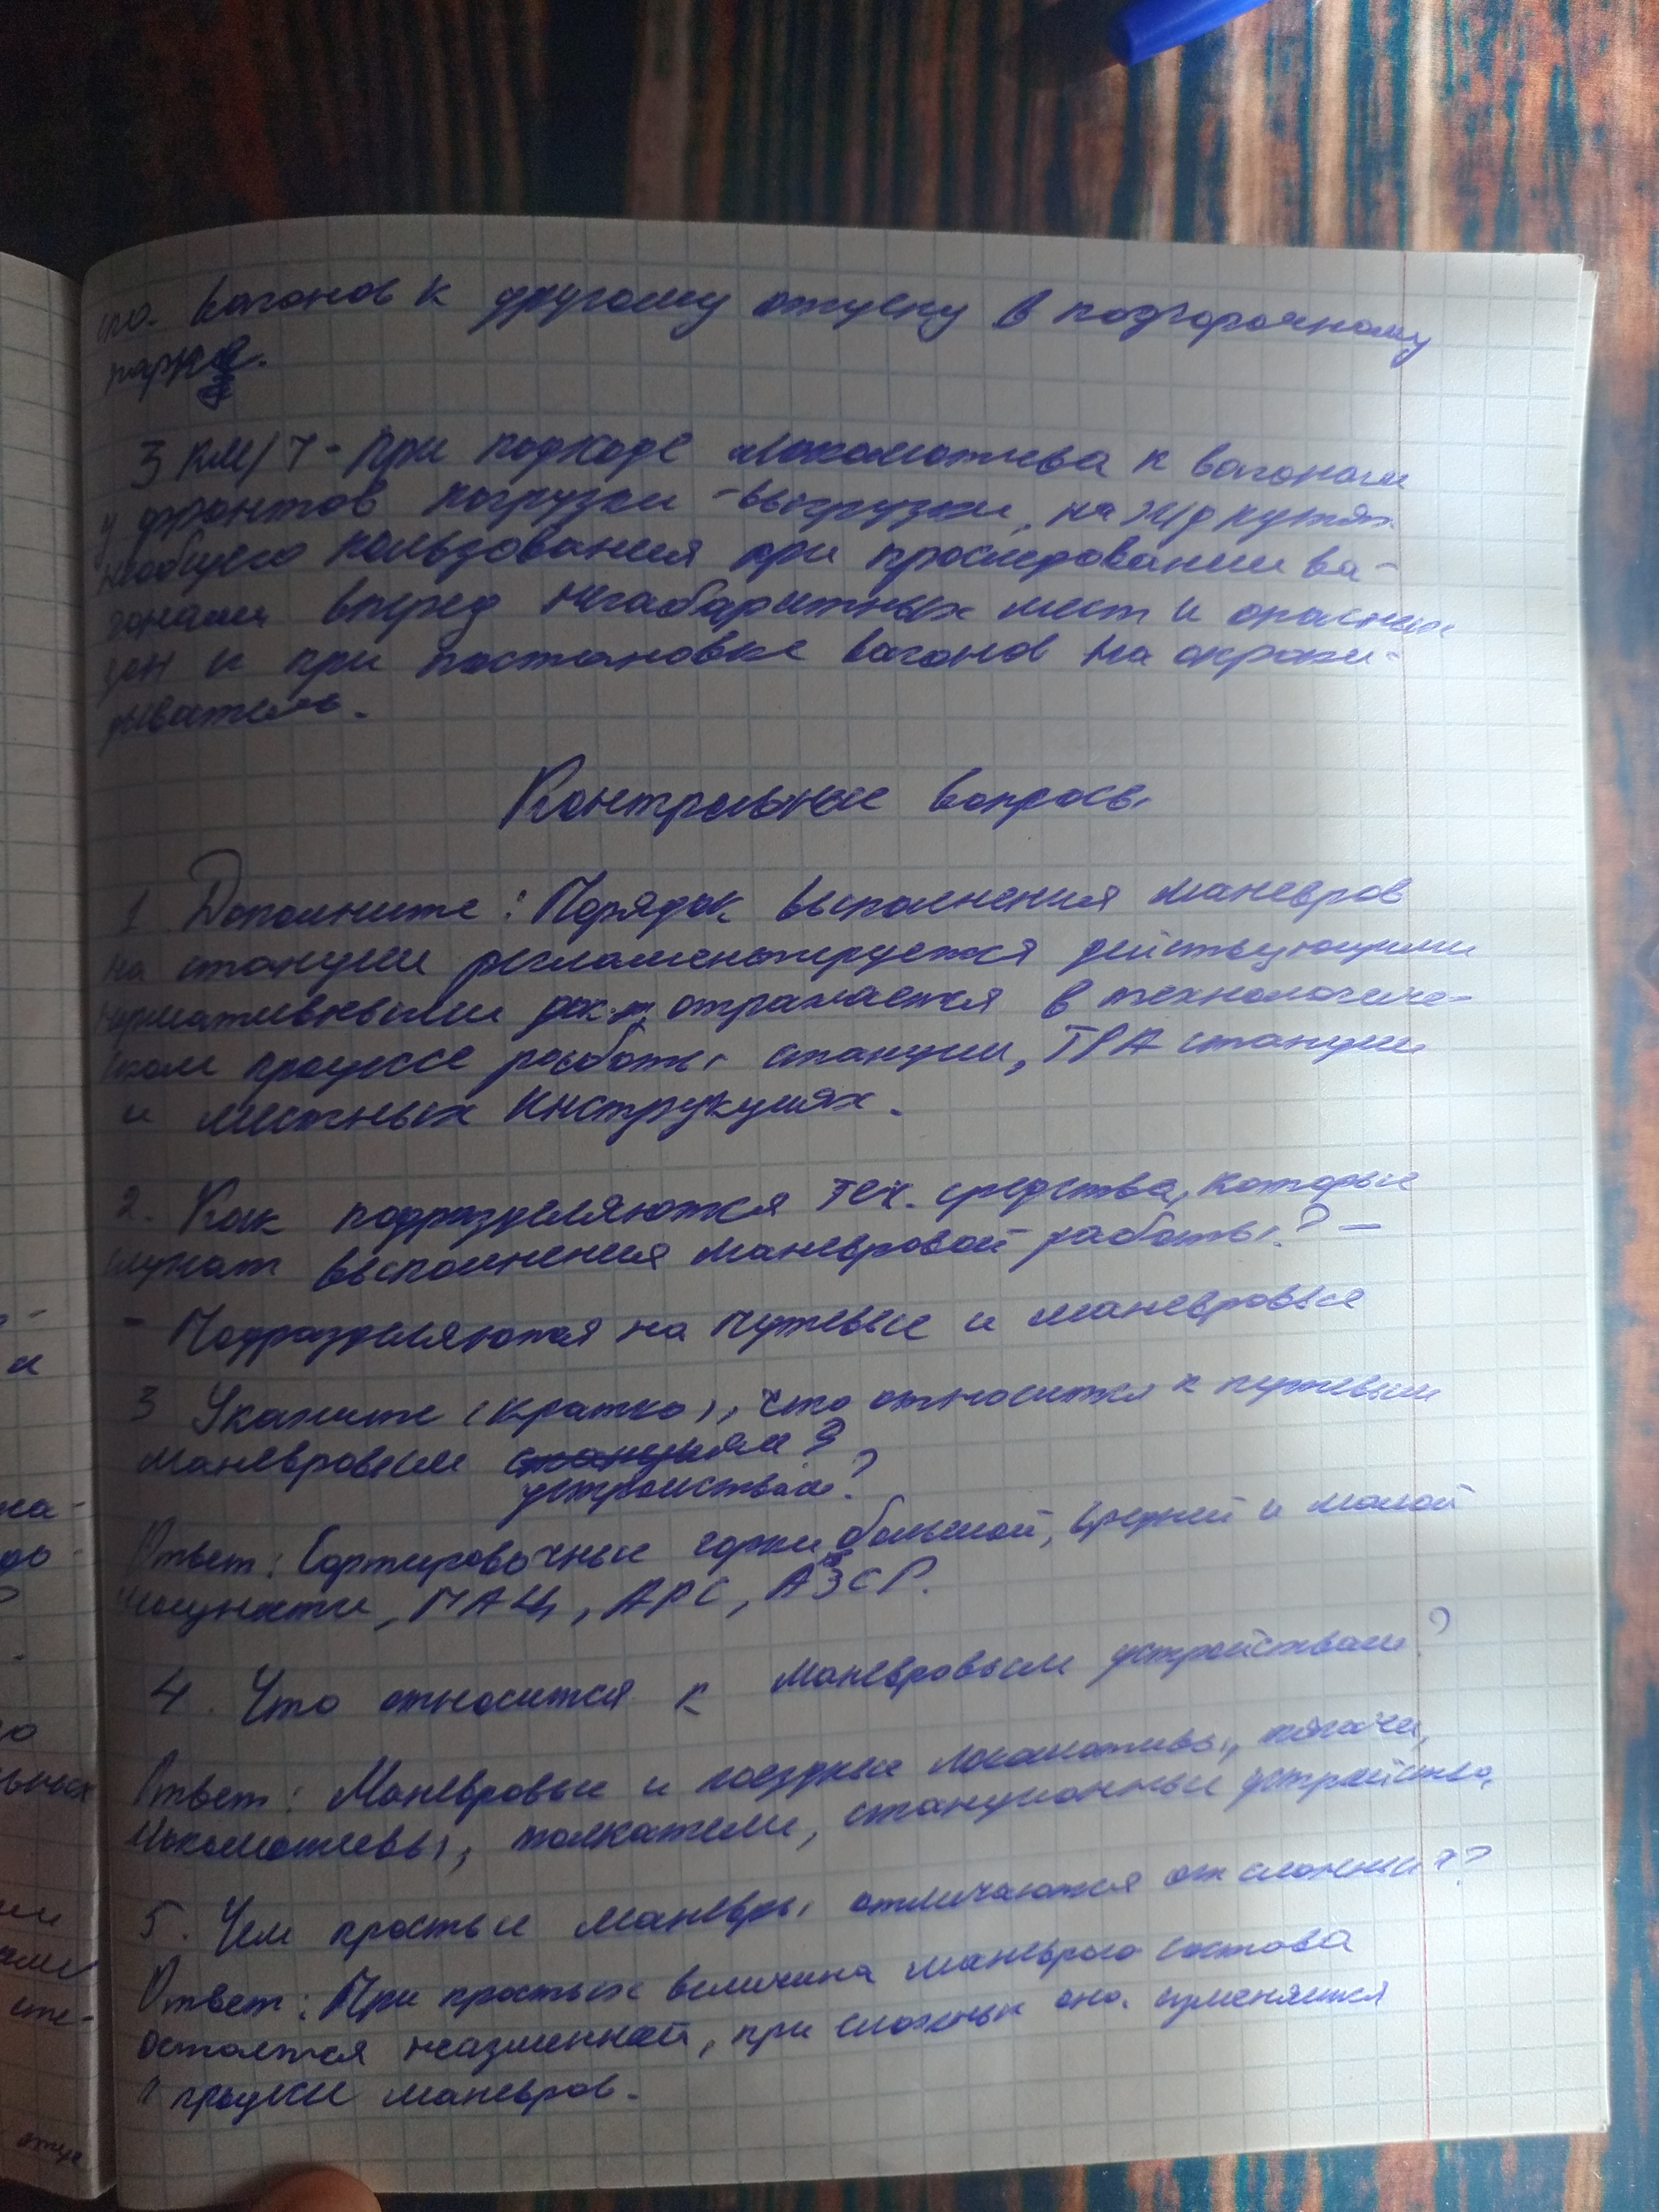 вагонов к другому отцепу в подгорочному
парке.
3 км/ч - при подходе локомотива к вагонам
у фронтов погрузки-выгрузки, на ж/д путях
необщего пользования при проследовании ва-
гонами вперед негабаритных мест и опасных
зон и при постановке вагонов на опроки-
дыватель.
Контрольные вопросы
1 Дополните: Порядок выполнения маневров
на станции регламентируется действующими
нормативными док-м, отражается в технологиче-
ском процессе работы станции, ТРА станции
и местных инструкциях.
2. Как подразделяются тех. средства, которые
служат выполнения маневровой работы? -
- Подразделяются на путевые и маневровые
3 Укажите (кратко), что относится к путевым
маневровым станциям?
устройствам?
Ответ: Сортировочные горки большой, средней и малой
мощности, ГАЦ, АРС, АЗСР.
4. Что относится к маневровым устройствам?
Ответ: Маневровые и поездные локомотивы, тягачи,
локомотивы, толкатели, станционные устройства.
5. Чем простые маневры отличаются от сложных??
Ответ: При простых величина маневрого состава
остается неазменной, при сложных она изменяется
в процессе маневров.